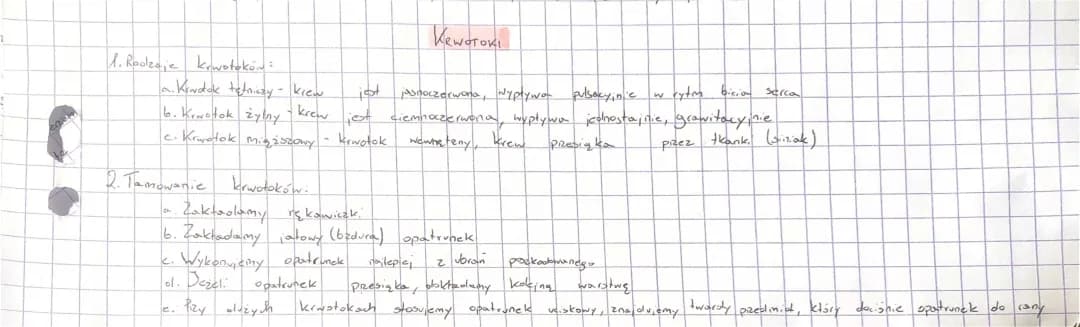 Krwotoki
1. Rodzaje krwotoków:
a. Krwotok tętniczy - krew jest jasnoczerwona, wypływa pulsacyjnie w rytm bicia serca
b. Krwotok żylny - krew jest ciemnoczerwona, wypływa jednostajnie, grawitacyjnie
c. Krwotok miąższowy - krwotok wewnęteny, krew przesiąka przez tkanki (siniak)
2. Tamowanie krwotoków.
a. Zakładamy rękawiczki
b. Zakładamy jałowy (bzdura) opatrunek
c. Wykonujemy opatrunek najlepiej z ubrań poszkodowanego
d. Jeżeli opatrunek przesiąka, dokładamy kolejną warstwę
e. Przy dużych krwotokach stosujemy opatrunek uciskowy, znajdujemy twardy przedmiot, który dociśnie opatrunek do rany